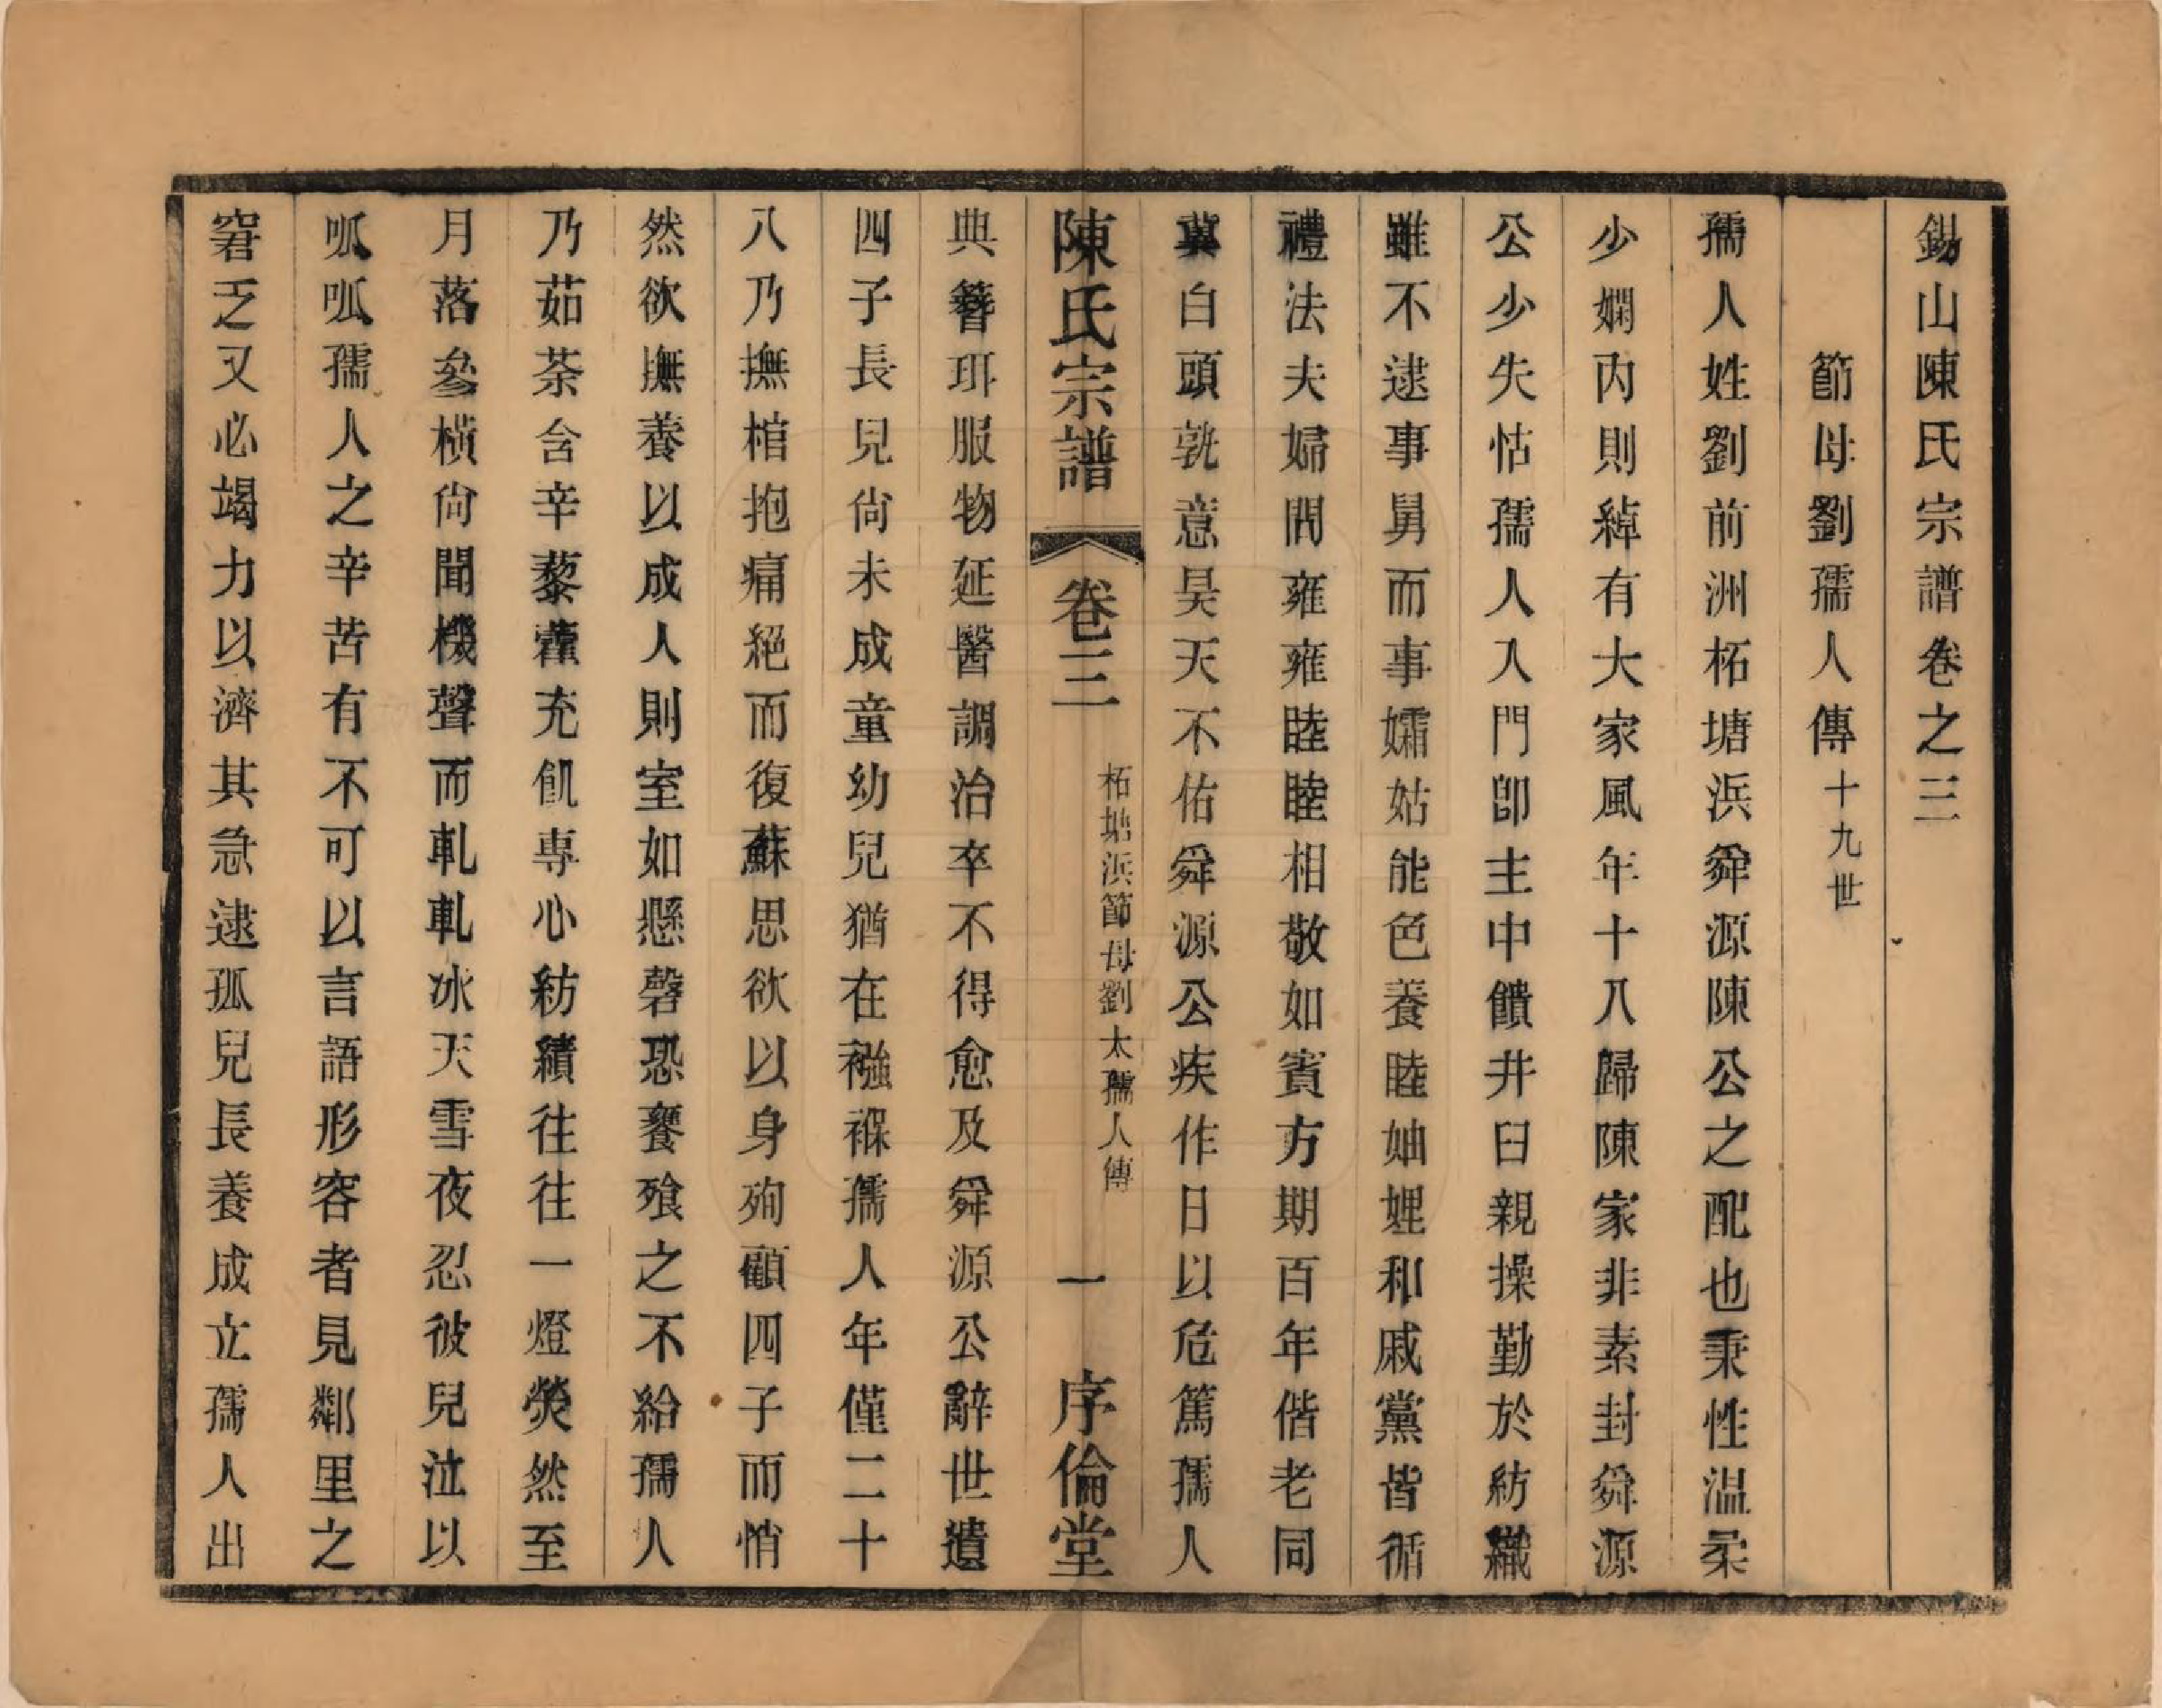 錫山陳氏宗譜卷之三
節母劉孺人傳十九世
孺人姓劉前洲柘塘浜舜源陳公之配也秉性温柔
少嫻內則綽有大家風年十八歸陳陳家非素封舜源
公少失怙孺人入門卽主中饋井臼親操勤於紡織
雖不逮事舅而事孀姑能色養睦妯娌和戚黨皆循
禮法夫婦間雍雍睦睦相敬如賓方期百年偕老同
冀白頭孰意昊天不佑舜源公疾作日以危篤孺人
陳氏宗譜
卷三
柘塘浜節母劉太孺人傳
一
序倫堂
典簪珥服物延醫調治卒不得愈及舜源公辭世遺
四子長兒尙未成童幼兒猶在襁褓孺人年僅二十
八乃撫棺抱痛絕而復蘇思欲以身殉顧四子而悄
然欲撫養以成人則室如懸磬恐饔飧之不給孺人
乃茹荼含辛藜藿充飢專心紡績往往一燈熒然至
月落參橫尙聞機聲而軋軋冰天雪夜忍彼兒泣以
呱呱孺人之辛苦有不可以言語形容者見鄰里之
窘乏又必竭力以濟其急逮孤兒長養成立孺人出